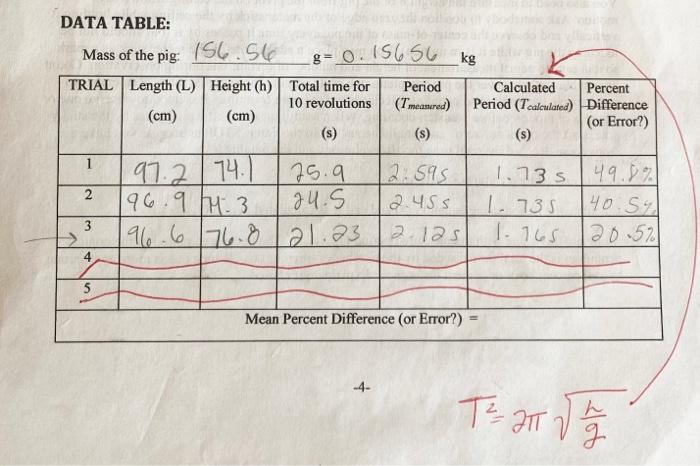 DATA TABLE:
Mass of the pig: 156.56 g = 0.15656 kg
TRIAL Length (L) (cm) Height (h) (cm) Total time for 10 revolutions (s) Period (Tmeasured) (s) Calculated Period (Tcalculated) (s) Percent Difference (or Error?)
1 97.2 74.1 25.9 2.59s 1.73s 49.8%
2 96.9 74.3 24.5 2.45s 1.73s 40.5%
3 96.6 76.8 21.23 2.12s 1.76s 20.5%
4
5
Mean Percent Difference (or Error?) =
-4-
T²= 2π √h/g